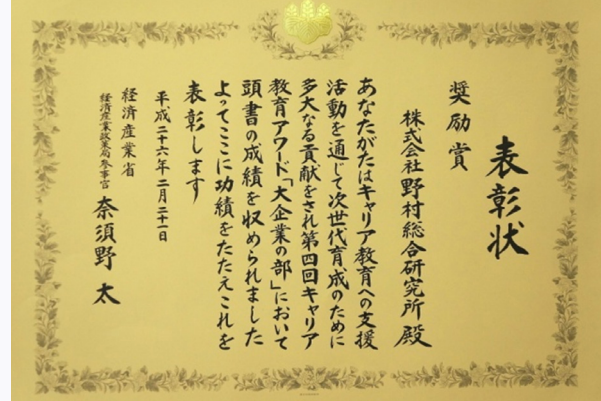 表彰状
奨励賞
株式会社野村総合研究所 殿
あなたがたはキャリア教育への支援
活動を通じて次世代育成のために
多大なる貢献をされ第四回キャリア
教育アワード「大企業の部」において
頭書の成績を収められました
よってここに功績をたたえこれを
表彰します
平成二十六年二月二十一日
経済産業省
経済産業政策局参事官 奈須野 太